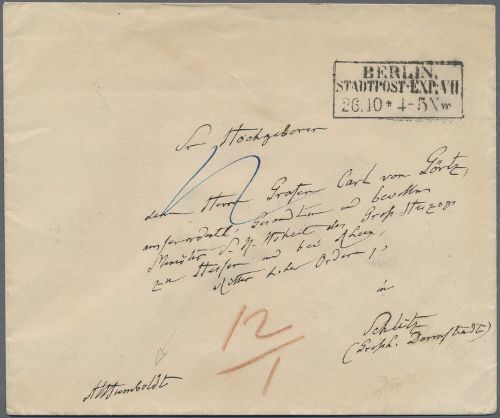 BERLIN,
STADTPOST-EXP:VII
26.10 * 4-5 N
Sr Hochgeboren
dem Herrn Grafen Carl von Görtz,
ausserordentl. Gesandten und bevollm
Minister S. K. Hoheit des Gross Herzogs
zu Hessen und bei Rhein,
Ritter hoher Orden p
in
Schlitz
(Grosh. Darmstadt)
12/1
AlHumboldt